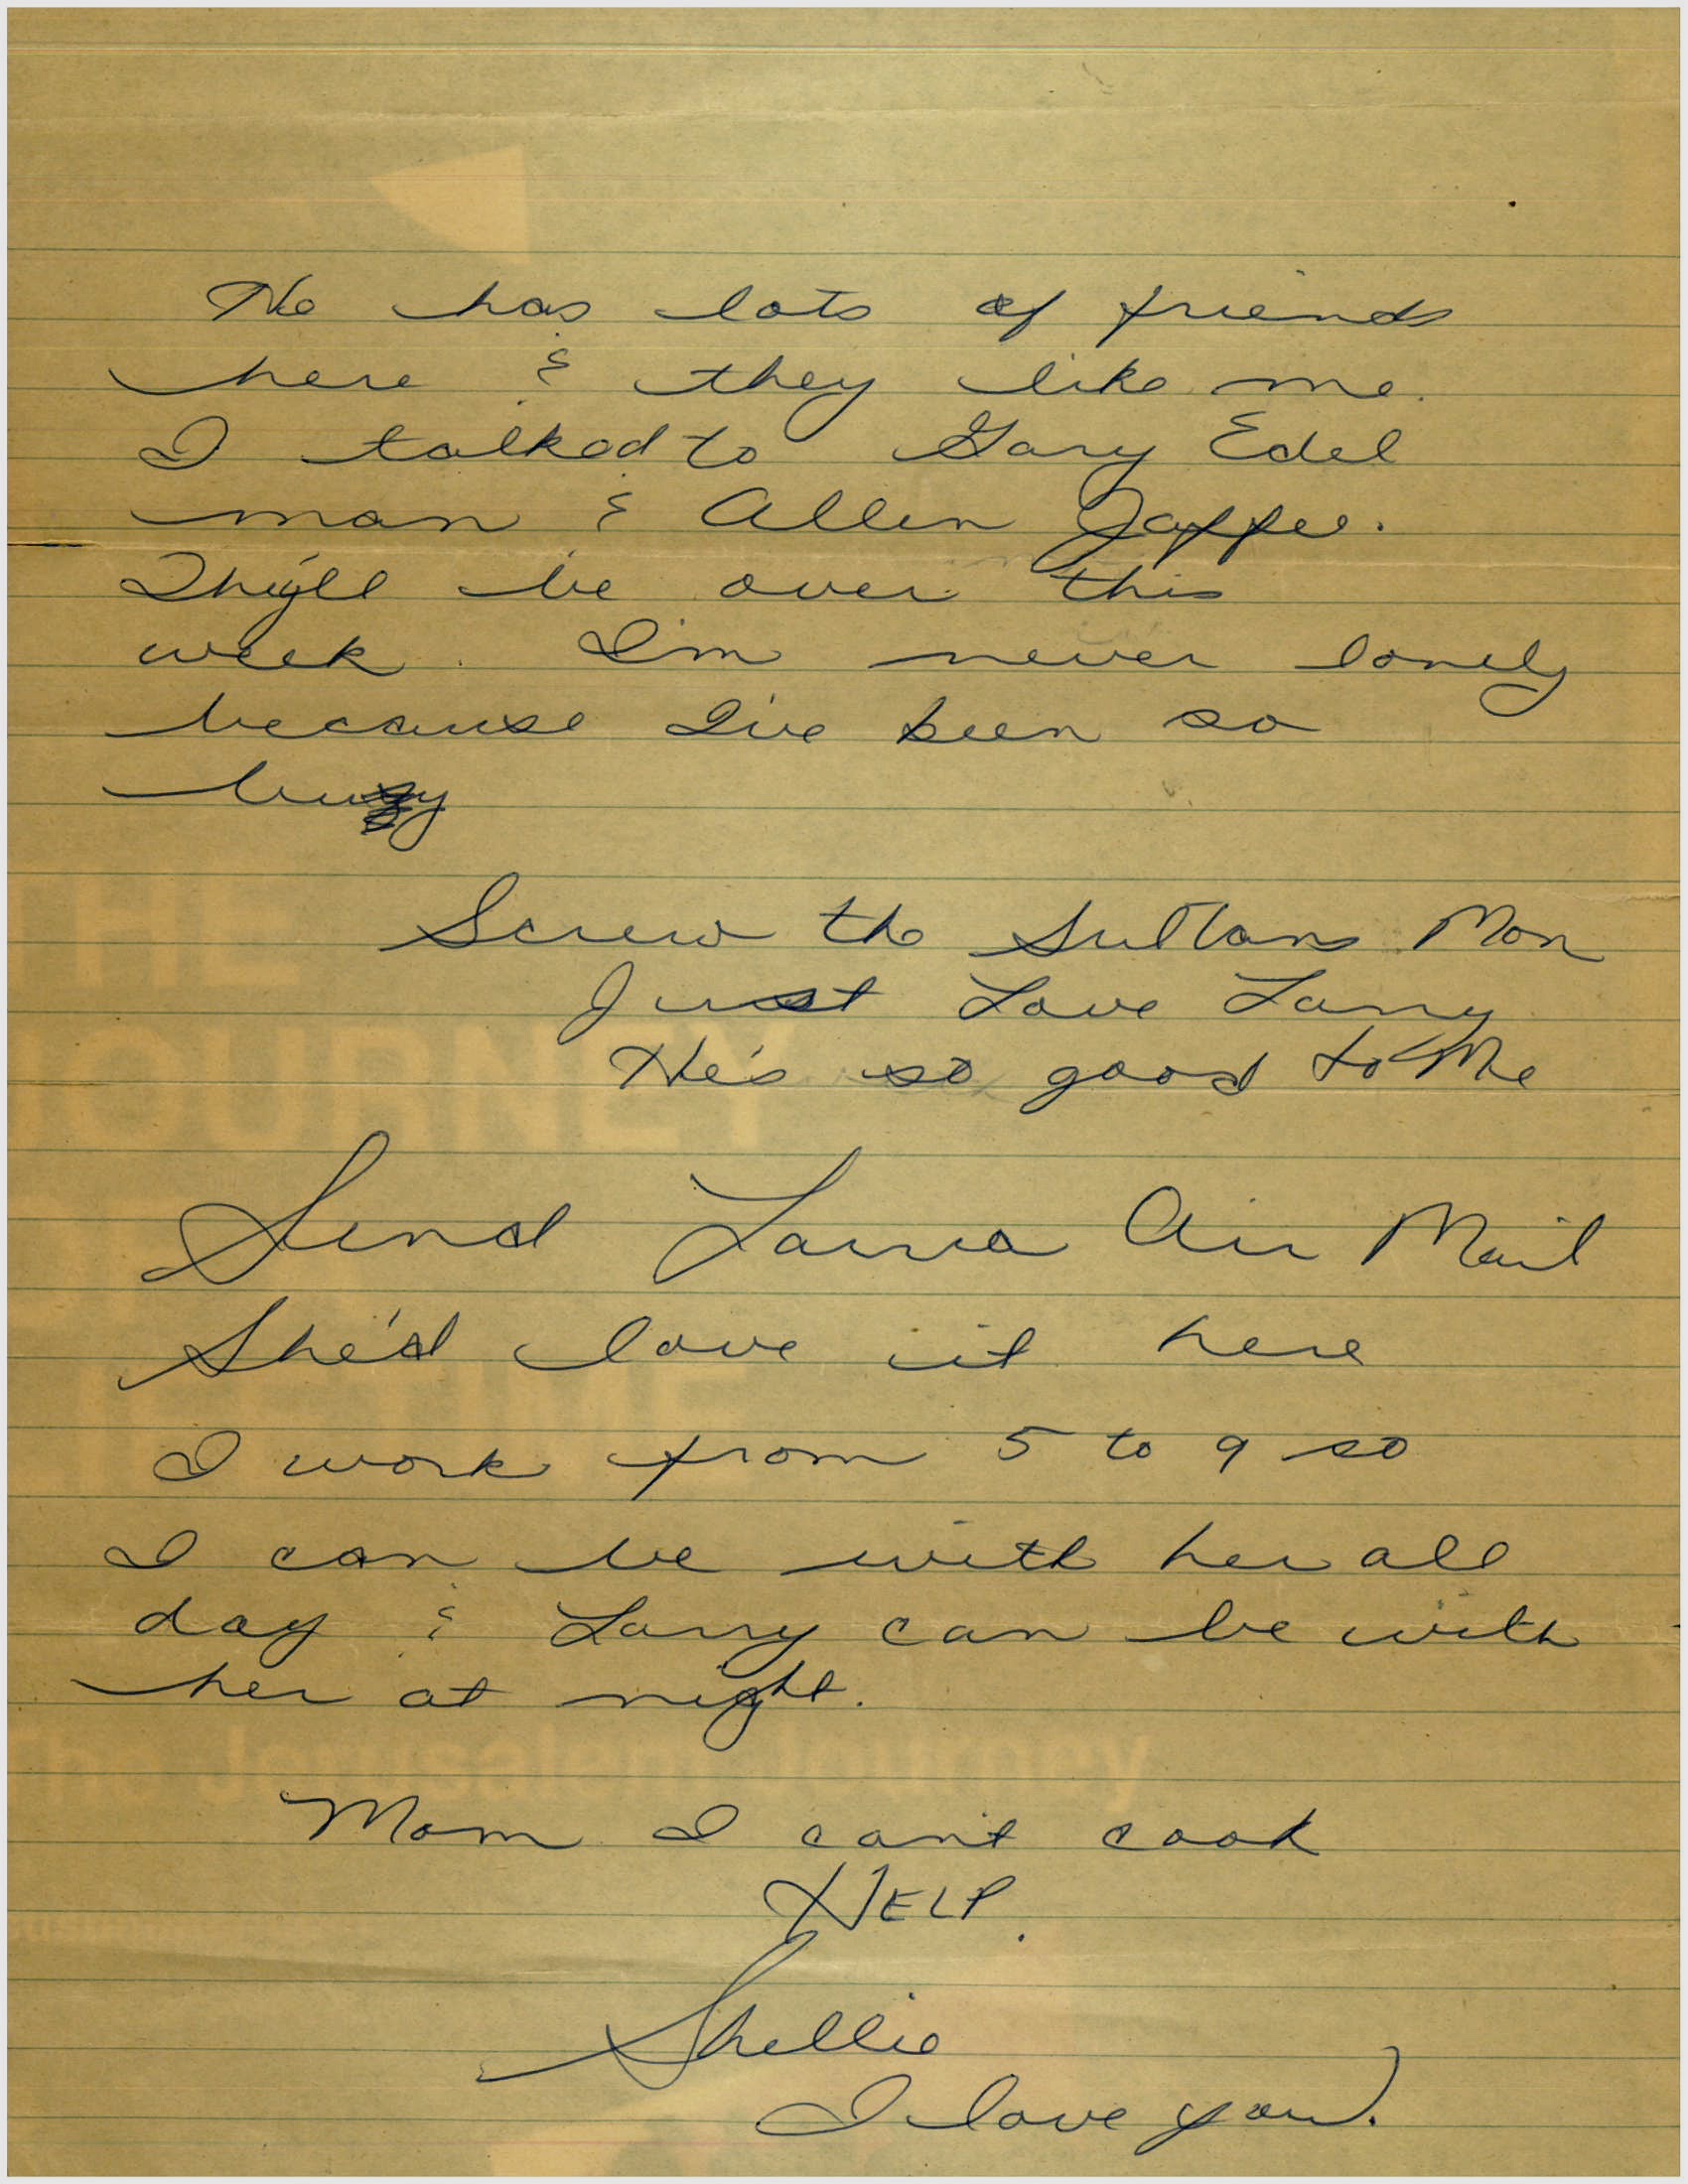 He has lots of friends
here & they like me.
I talked to Gary Edel
man & Allen Jaffee.
They'll be over this
week. I'm never lonely
because I've been so
busy
Screw the Sultans Mom
Just Love Larry
He's so good to Me
Send Laura Air Mail
She'd love it here
I work from 5 to 9 so
I can be with her all
day & Larry can be with
her at night.
Mom I can't cook
HELP.
Shellie
I love you.